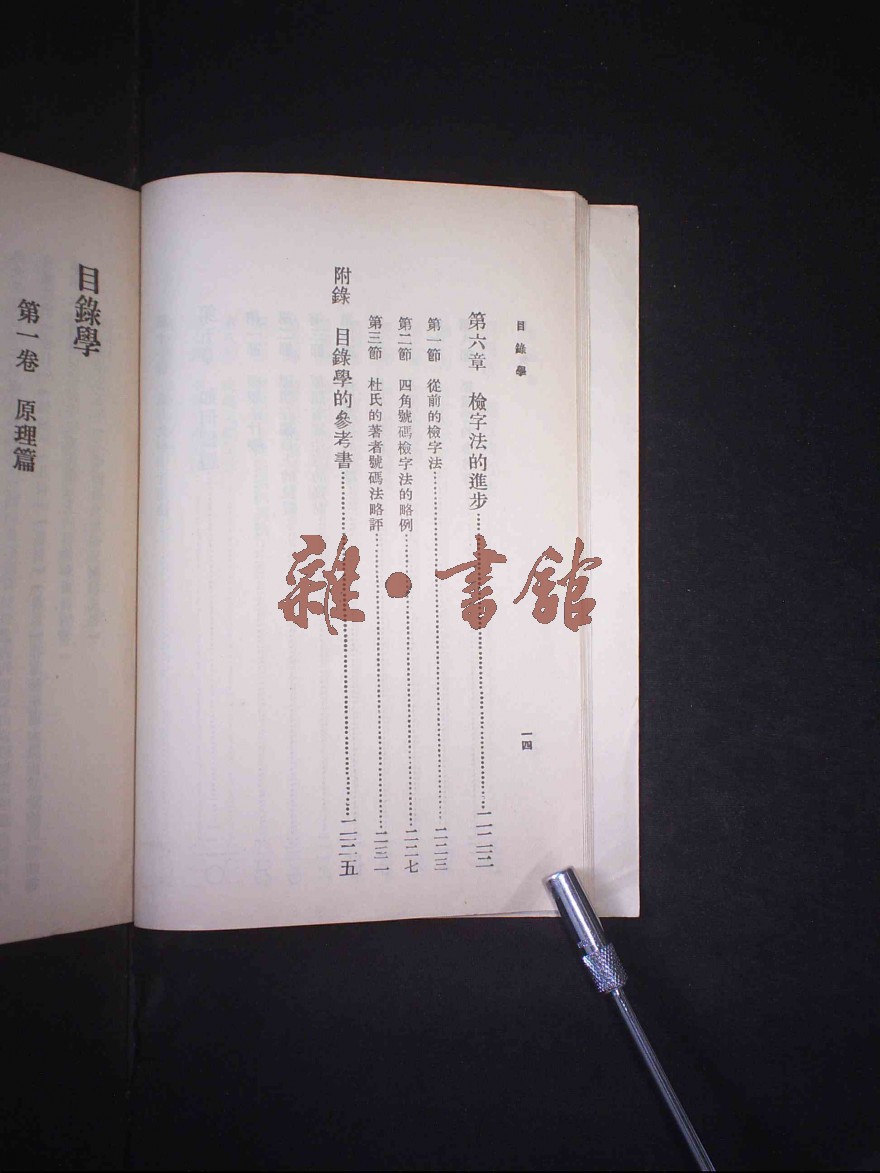 目錄學
一四
第六章　檢字法的進步……二二二
第一節　從前的檢字法……二二三
第二節　四角號碼檢字法的略例……二二七
第三節　杜氏的著者號碼法略評……二三一
附錄　目錄學的參考書……二三五
目錄學
第一卷　原理篇
雜·書館